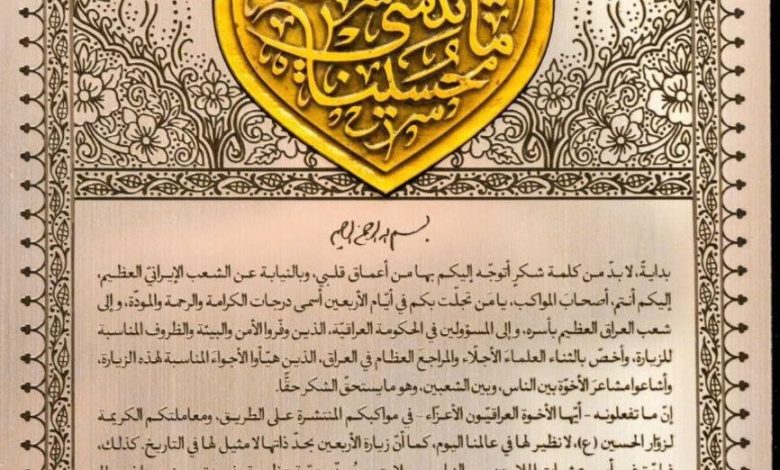 ما ننسى
حسيننا
بسم الله الرحمن الرحيم
بدايةً، لا بدّ من كلمة شكرٍ أتوجّه إليكم بها من أعماق قلبي، وبالنيابة عن الشعب الإيرانيّ العظيم،
إليكم أنتم، أصحابَ المواكب، يا مَن تجلّت بكم في أيّام الأربعين أسمى درجات الكرامة والرحمة والمودّة، وإلى
شعب العراق العظيم بأسره، وإلى المسؤولين في الحكومة العراقيّة، الذين وفّروا الأمن والبيئة والظروف المناسبة
للزيارة، وأخصّ بالثناء العلماءَ الأجلّاء، والمراجعَ العظام في العراق، الذين هيّأوا الأجواءَ المناسبة لهذه الزيارة،
وأشاعوا مشاعرَ الأخوّة بين الناس، وبين الشعبين، وهو ما يستحقّ الشكر حقًّا.
إنّ ما تفعلونه - أيّها الأخوة العراقيّون الأعزّاء - في مواكبكم المنتشرة على الطريق، ومعاملتكم الكريمة
لزوّار الحسين (ع)، لا نظير لها في عالمنا اليوم، كما أنّ زيارة الأربعين بحدّ ذاتها لا مثيل لها في التاريخ. كذلك،